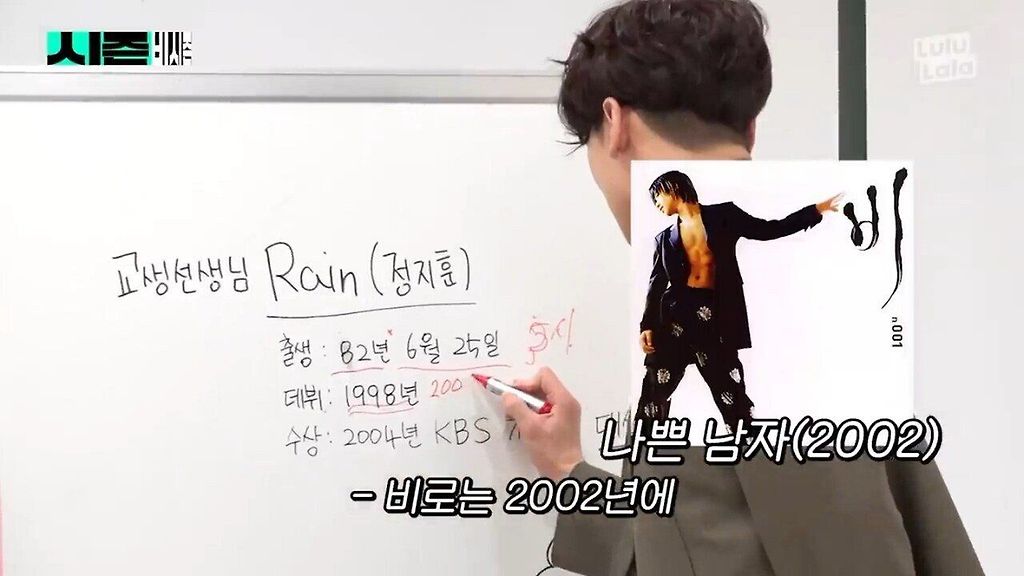 시즌비시즌
Lulu
Lala
비
n.001
교생선생님 Rain (정지훈)
출생 : 82년 6월 25일
데뷔 : 1998년 200
수상 : 2004년 KBS
나쁜 남자(2002)
- 비로는 2002년에